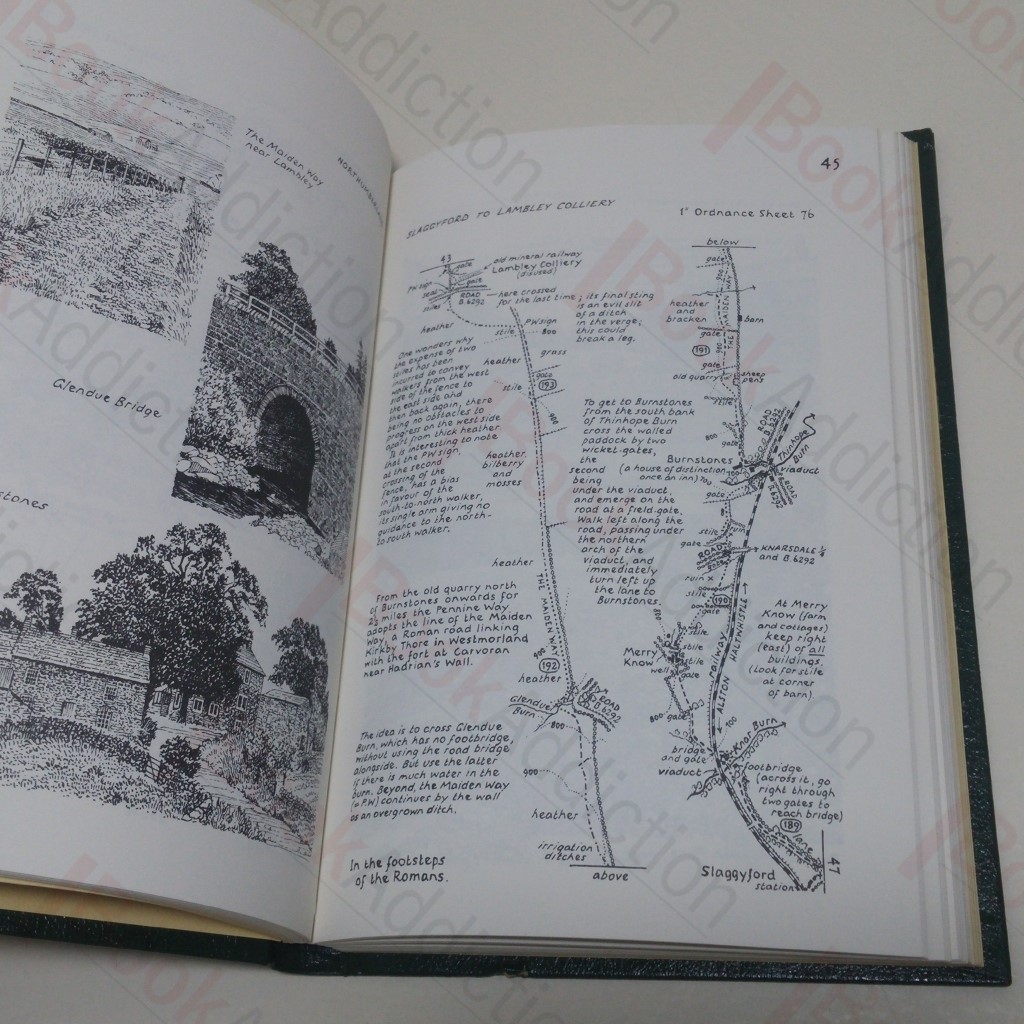 The Maiden Way
near Lambley
Glendue Bridge
45
SLAGGYFORD TO LAMBLEY COLLIERY
1" Ordnance Sheet 76
43
gate
old mineral railway
Lambley Colliery
(disused)
gate
PW sign
stiles
ROAD
B.6292
here crossed
for the last time; its final sting
is an evil slit
of a ditch
in the verge;
this could
break a leg.
heather
PW sign
stile
800
grass
heather
gate
193
stile
900
One wonders why
the expense of two
stiles has been
incurred to convey
walkers from the west
side of the fence to
the east side and
then back again, there
being no obstacles to
progress on the west side
apart from thick heather.
It is interesting to note
that the PW sign,
at the second
crossing of the
fence, has a bias
in favour of the
south-to-north walker,
its single arm giving no
guidance to the north-
to south walker.
heather,
bilberry
and
mosses
heather
THE MAIDEN WAY
192
heather
From the old quarry north
of Burnstones onwards for
2½ miles the Pennine Way
adopts the line of the Maiden
Way, a Roman road linking
Kirkby Thore in Westmorland
with the fort at Carvoran
near Hadrian's Wall.
Glendue
Burn
ROAD
B.6292
800
The idea is to cross Glendue
Burn, which has no footbridge,
without using the road bridge
alongside. But use the latter
if there is much water in the
burn. Beyond, the Maiden Way
(= P.W) continues by the wall
as an overgrown ditch.
900
heather
irrigation
ditches
above
In the footsteps
of the Romans.
below
gate
heather
and
bracken
THE MAIDEN WAY
barn
gate
900
191
gate
old quarry
sheep
pens
stile
To get to Burnstones
from the south bank
of Thinhope Burn
cross the walled
paddock by two
wicket-gates,
the
second
being
under the viaduct,
and emerge on the
road at a field-gate.
Walk left along the
road, passing under
the northern
arch of the
viaduct, and
immediately
turn left up
the lane to
Burnstones.
800
ROAD
B.6292
Thinhope
Burn
Burnstones
(a house of distinction,
once an inn)
700
viaduct
ROAD
B.6292
gate
stile
ruin
gate
ROAD
KNARSDALE ¼
and B.6292
ruin x
stile
190
gate
800
stile
Merry
Know
stile
well
gate
ALSTON railway HALTWHISTLE
At Merry
Know (farm
and cottages)
keep right
(east) of all
buildings.
(Look for stile
at corner
of barn).
800
gate
700
Knar Burn
bridge
and gate
viaduct
footbridge
(across it, go
right through
two gates to
reach bridge)
189
lane
47
Slaggyford
station